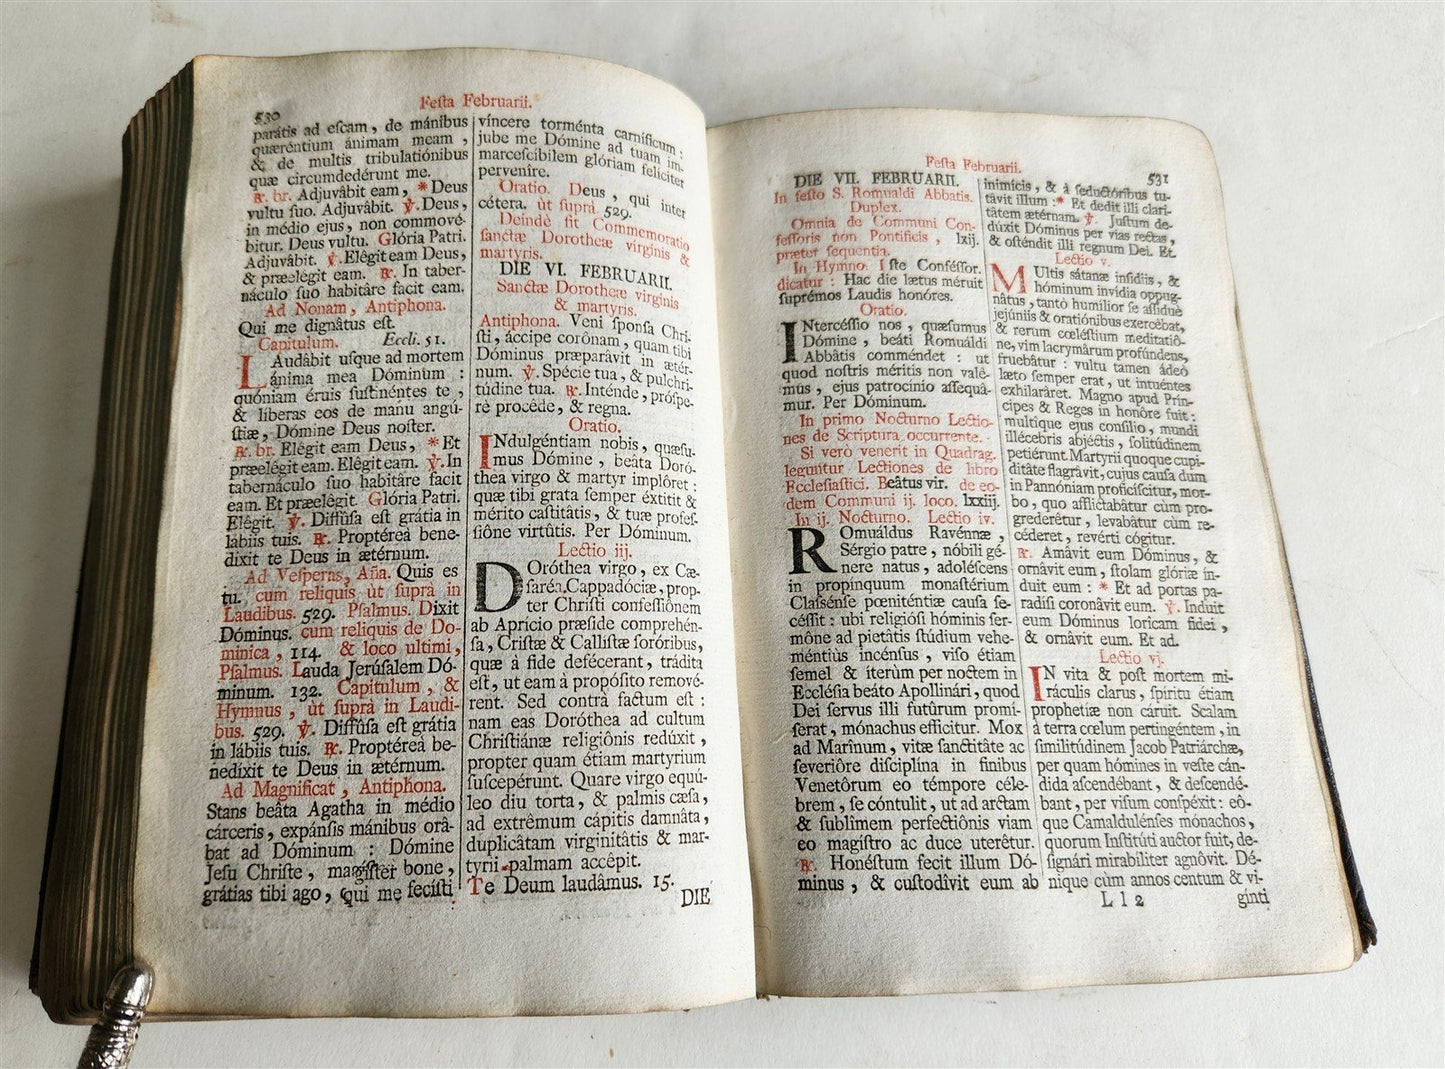 530
Festa Februarii.
parátis ad escam, de mánibus
quæréntium ánimam meam,
& de multis tribulatiónibus
quæ circumdedérunt me.
℟. br. Adjuvâbit eam, * Deus
vultu suo. Adjuvâbit. ℣. Deus,
in médio ejus, non commové-
bitur. Deus vultu. Glória Patri.
Adjuvâbit. ℣. Elêgit eam Deus,
& præelêgit eam. ℟. In taber-
náculo suo habitâre facit eam.
Ad Nonam, Antiphona.
Qui me dignâtus est.
Capitulum. Eccli. 51.
LAudâbit usque ad mortem
ánima mea Dóminum :
quóniam éruis sustinéntes te,
& líberas eos de manu angú-
stiæ, Dómine Deus noster.
℟. br. Elêgit eam Deus, * Et
præelégit eam. Elêgit eam. ℣. In
tabernáculo suo habitâre facit
eam. Et præelêgit. Glória Patri.
Elêgit. ℣. Diffúsa est grátia in
lábiis tuis. ℟. Proptérea bene-
dixit te Deus in ætérnum.
Ad Vesperas, Aña. Quis es
tu. cum reliquis ùt suprà in
Laudibus. 529. Psalmus. Dixit
Dóminus. cum reliquis de Do-
minica, 114. & loco ultimi,
Psalmus. Lauda Jerúsalem Dó-
minum. 132. Capitulum, &
Hymnus, ùt suprà in Laudi-
bus. 529. ℣. Diffúsa est grátia
in lábiis tuis. ℟. Proptéreà be-
nedíxit te Deus in ætérnum.
Ad Magnificat, Antiphona.
Stans beâta Agatha in médio
cárceris, expánsis mánibus orâ-
bat ad Dóminum : Dómine
Jesu Christe, magíster bone,
grátias tibi ago, qui me fecísti
víncere torménta carnificum :
jube me Dómine ad tuam im-
marcescíbilem glóriam felíciter
pervenîre.
Oratio. Deus, qui inter
cétera. ùt suprà 529.
Deindè fit Commemoratio
sanctæ Dorotheæ virginis &
martyris.
DIE VI. FEBRUARII.
Sanctæ Dorotheæ virginis
& martyris.
Antiphona. Veni sponsa Chri-
sti, áccipe corônam, quam tibi
Dóminus præparâvit in ætér-
num. ℣. Spécie tua, & pulchri-
túdine tua. ℟. Inténde, próspe-
rè procède, & regna.
Oratio.
INdulgéntiam nobis, quæsu-
mus Dómine, beáta Doró-
thea virgo & martyr implôret :
quæ tibi grata semper éxtitit &
mérito castitâtis, & tuæ profes-
siône virtûtis. Per Dóminum.
Lectio iij.
DOróthea virgo, ex Cæ-
saréa Cappadóciæ, prop-
ter Christi confessiônem
ab Aprício præside comprehén-
sa, Cristæ & Callístæ soróribus,
quæ à fide defécerant, trádita
est, ut eam à propósito removê-
rent. Sed contrà factum est :
nam eas Doróthea ad cultum
Christiánæ religiônis redúxit,
propter quam étiam martyrium
suscepérunt. Quare virgo equú-
leo diu torta, & palmis cæsa,
ad extrêmum cápitis damnâta,
duplicâtam virginitâtis & mar-
tyrii palmam accêpit.
Te Deum laudâmus. 15.
DIE
Festa Februarii.
531
DIE VII. FEBRUARII.
In festo S. Romualdi Abbatis.
Duplex.
Omnia de Communi Con-
fessoris non Pontificis, lxij.
præter sequentia.
In Hymno. Iste Conféssor.
dicatur : Hac die lætus méruit
suprémos Laudis honóres.
Oratio.
INtercéssio nos, quæsumus
Dómine, beáti Romuáldi
Abbâtis comméndet : ut
quod nostris méritis non valê-
mus, ejus patrocínio assequâ-
mur. Per Dóminum.
In primo Nocturno Lectio-
nes de Scriptura occurrente.
Si verò venerit in Quadrag.
leguntur Lectiones de libro
Ecclesiastici. Beâtus vir. de eo-
dem Communi ij. loco. lxxiij.
In ij. Nocturno. Lectio iv.
ROmuáldus Ravénnæ,
Sérgio patre, nóbili gé-
nere natus, adoléscens
in propínquum monastérium
Classénse pœniténtiæ causa se-
céssit : ubi religiósi hóminis ser-
mône ad pietâtis stúdium vehe-
méntiùs incénsus, viso étiam
semel & iterùm per noctem in
Ecclésia beáto Apollinári, quod
Dei servus illi futûrum promí-
serat, mónachus efficitur. Mox
ad Marînum, vitæ sanctitâte ac
severiôre disciplína in fínibus
Venetôrum eo témpore céle-
brem, se cóntulit, ut ad arctam
& sublîmem perfectiônis viam
eo magistro ac duce uterêtur.
℟. Honéstum fecit illum Dó-
minus, & custodîvit eum ab
inimícis, & à seductóribus tu-
tâvit illum : * Et dedit illi clari-
tâtem ætérnam. ℣. Justum de-
dúxit Dóminus per vias rectas,
& osténdit illi regnum Dei. Et.
Lectio v.
MUltis sátanæ insídiis, &
hóminum invídia oppug-
nâtus, tantò humílior se assíduè
jejúniis & oratiónibus exercêbat,
& rerum cœléstium meditatiô-
ne, vim lacrymârum profúndens,
fruebâtur : vultu tamen ádeò
læto semper erat, ut intuéntes
exhilaráret. Magno apud Prín-
cipes & Reges in honôre fuit :
multíque ejus consílio, mundi
illécebris abjéctis, solitúdinem
petiérunt. Martyrii quoque cupi-
ditâte flagrâvit, cujus causa dum
in Pannóniam proficíscitur, mor-
bo, quo afflictabâtur cùm pro-
grederêtur, levabâtur cùm re-
céderet, revérti cógitur.
℟. Amâvit eum Dóminus, &
ornâvit eum, stolam glóriæ in-
duit eum : * Et ad portas pa-
radísi coronâvit eum. ℣. Induit
eum Dóminus loricam fidei,
& ornâvit eum. Et ad.
Lectio vj.
IN vita & post mortem mi-
ráculis clarus, spíritu étiam
prophetíæ non cáruit. Scalam
à terra cœlum pertingéntem, in
similitúdinem Jacob Patriárchæ,
per quam hómines in veste cán-
dida ascendébant, & descendé-
bant, per visum conspéxit : eó-
que Camaldulénses mónachos,
quorum Institúti auctor fuit, de-
signári mirabíliter agnôvit. Dé-
nique cùm annos centum & vi-
L l 2
ginti